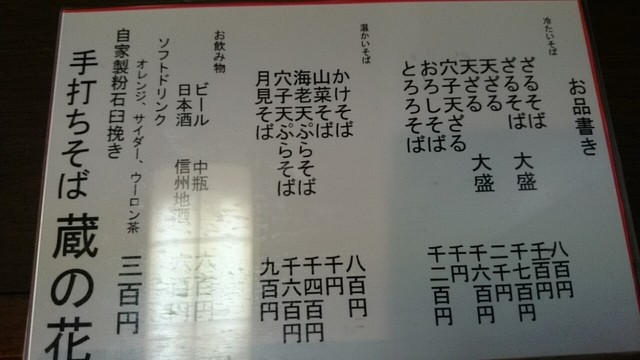 お品書き
冷たいそば
ざるそば 八百円
ざるそば 大盛 千百円
天ざる 千七百円
天ざる 大盛 二千円
穴子天ざる 千六百円
おろしそば 千円
とろろそば 千二百円
温かいそば
かけそば 八百円
山菜そば 千円
海老天ぷらそば 千四百円
穴子天ぷらそば 千六百円
月見そば 九百円
お飲み物
ビール 中瓶 六百円
日本酒 信州地酒、 百円
ソフトドリンク
オレンジ、サイダー、ウーロン茶 三百円
自家製粉石臼挽き
手打ちそば 蔵の花